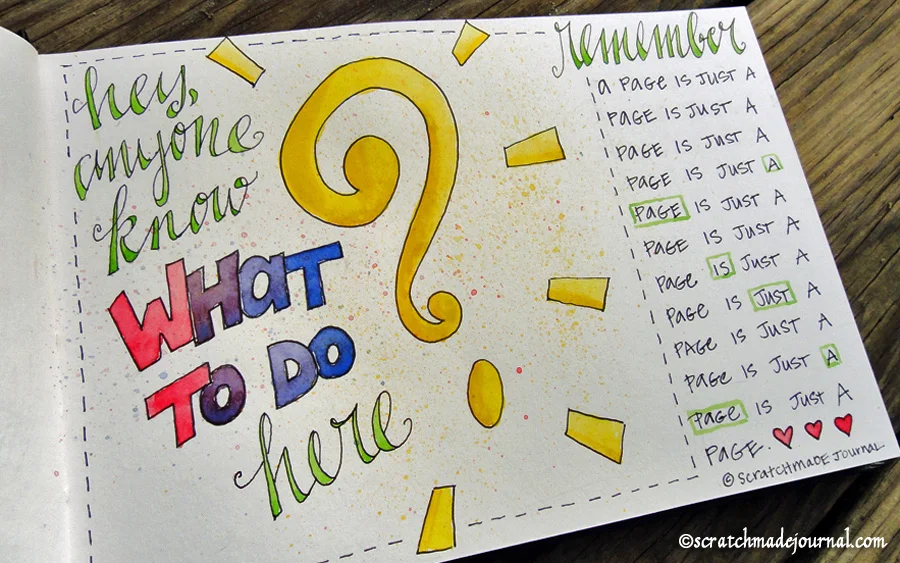 hey,
anyone
know
WHAT
TO DO
here
remember
a PAGE IS JUST A
PAGE IS JUST A
PAGE IS JUST A
PAGE IS JUST A
PAGE IS JUST A
PAGE IS JUST A
PAGE IS JUST A
PAGE IS JUST A
PAGE IS JUST A
PAGE IS JUST A
PAGE IS JUST A
PAGE.
© SCRATCHMADE JOURNAL
©scratchmadejournal.com